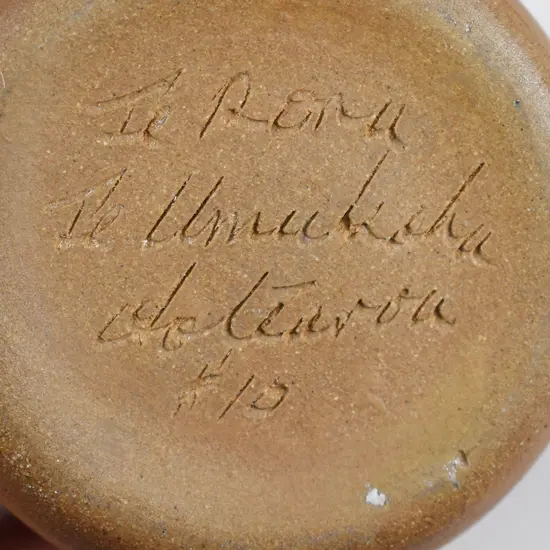 Te Rena
Te Umukaha
Aotearoa
#10